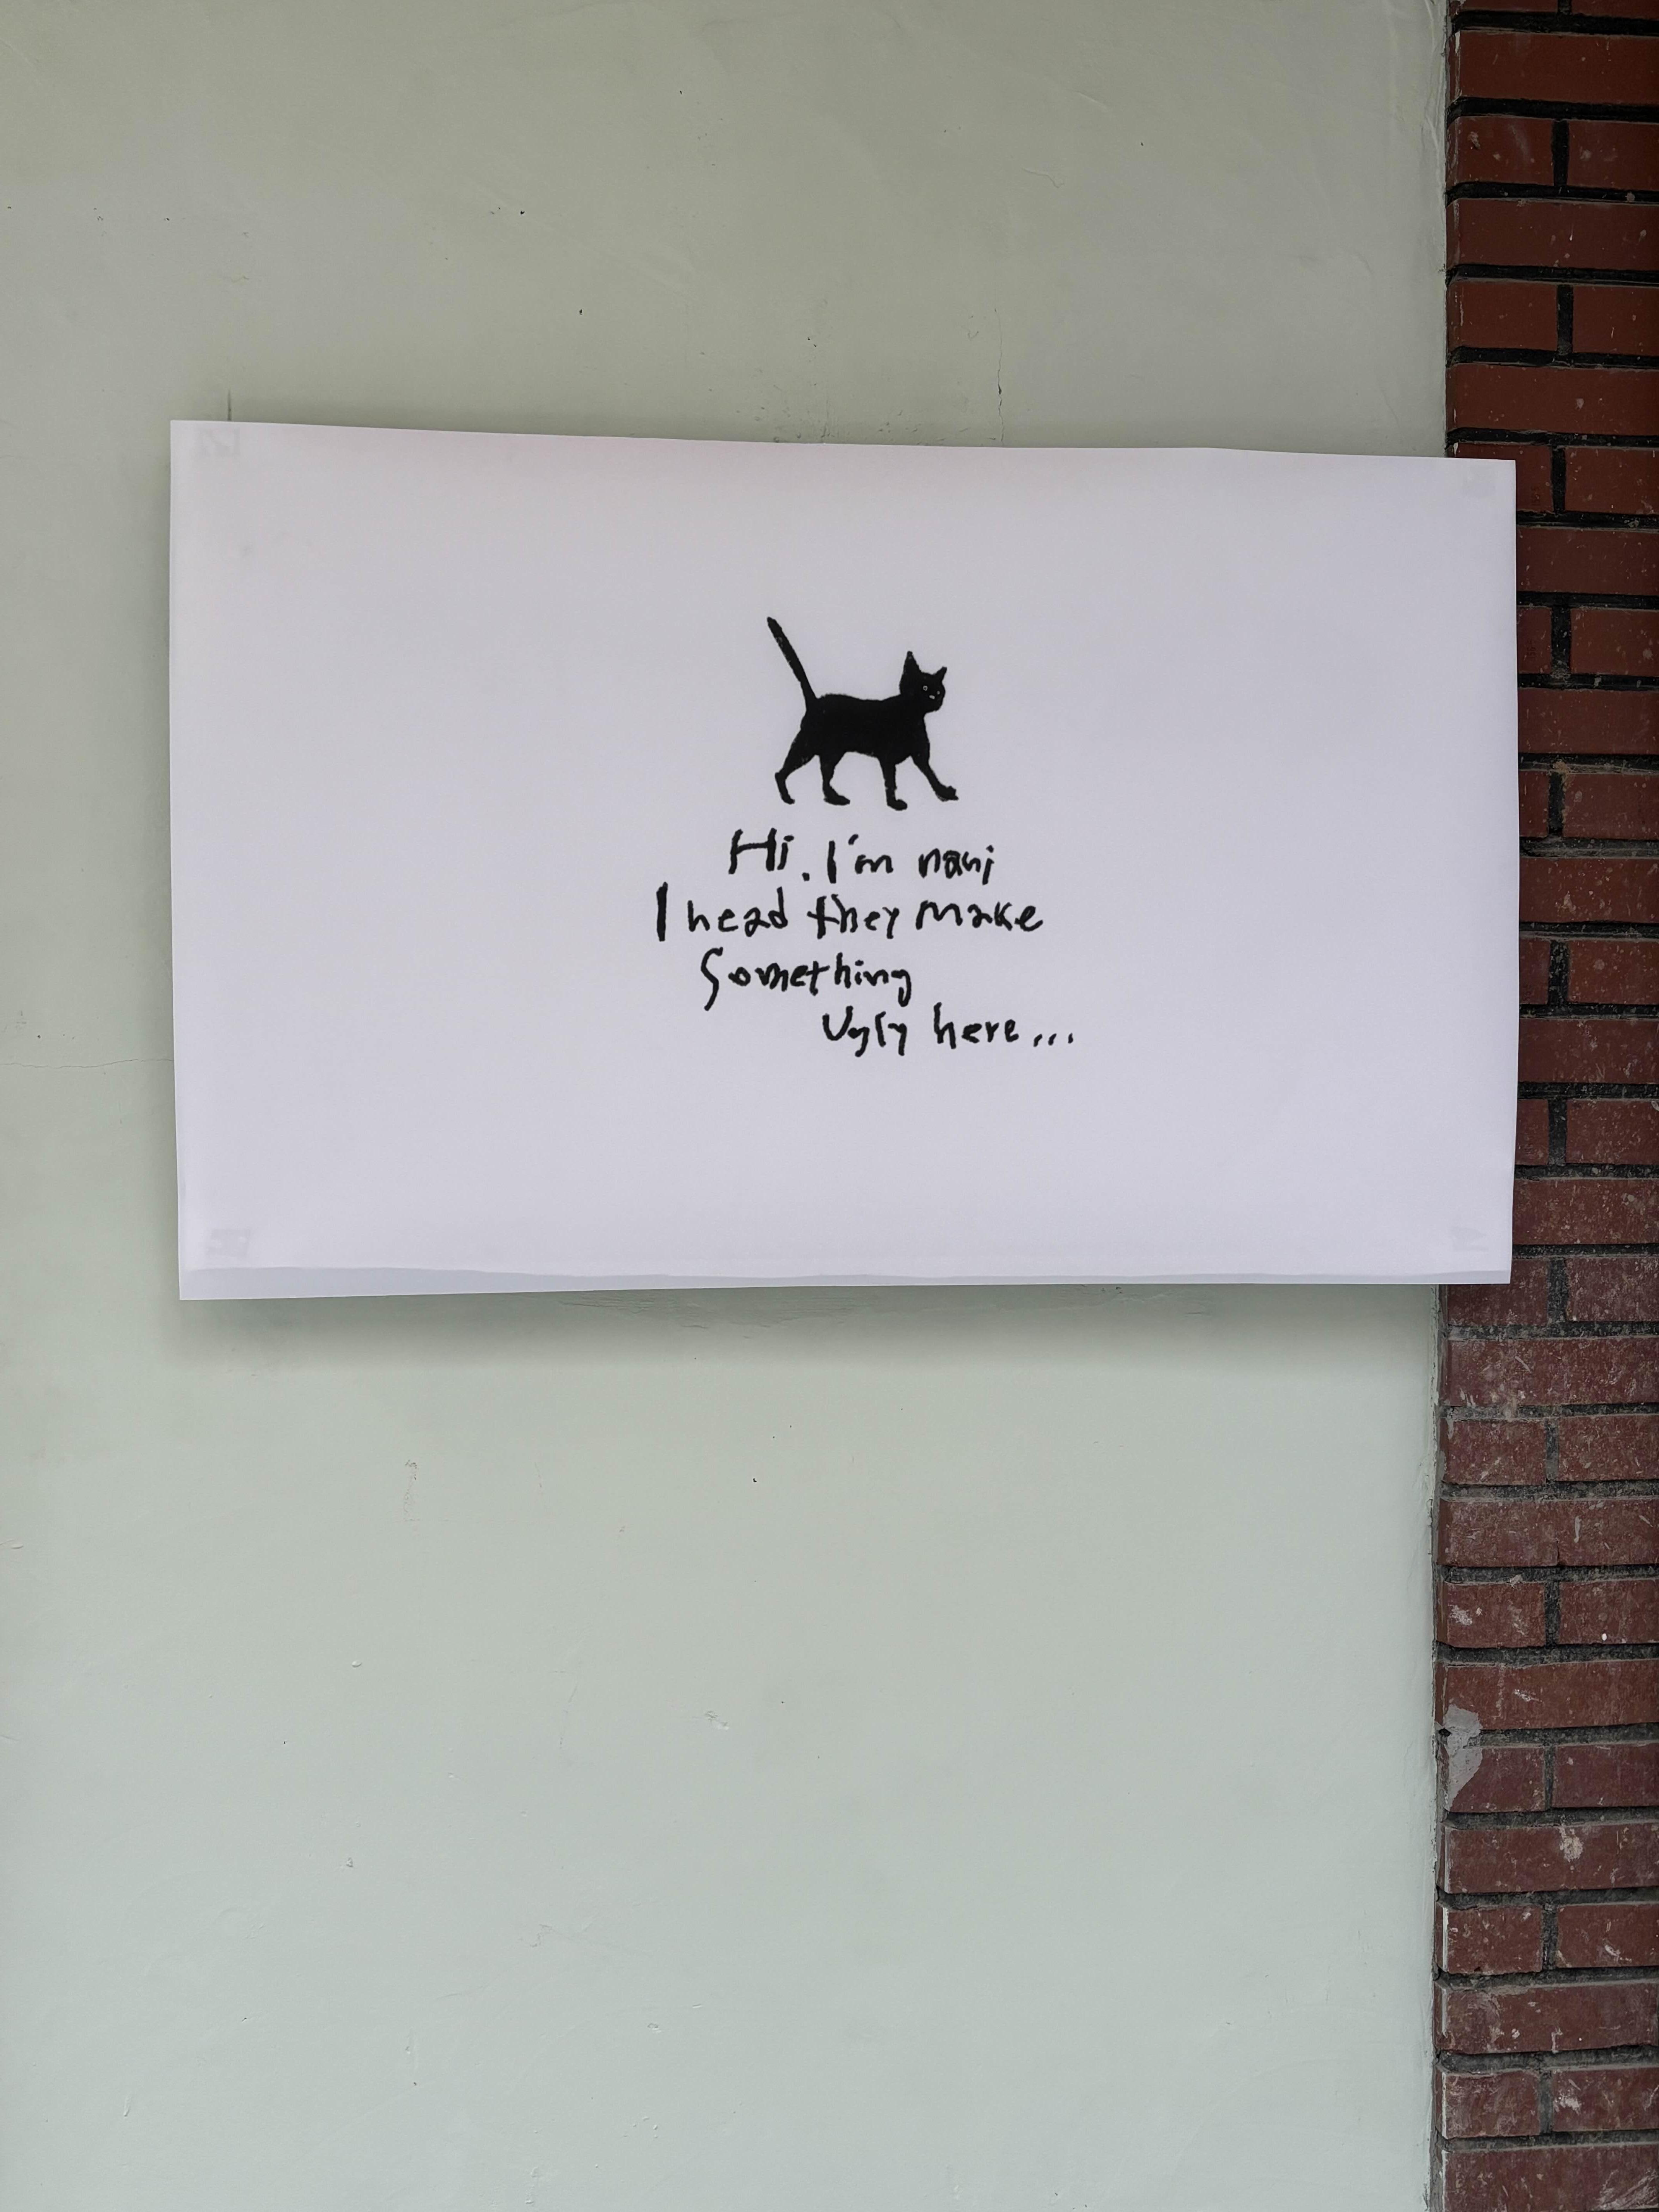 Hi. I'm nani
I head they make
Something
Ugly here...